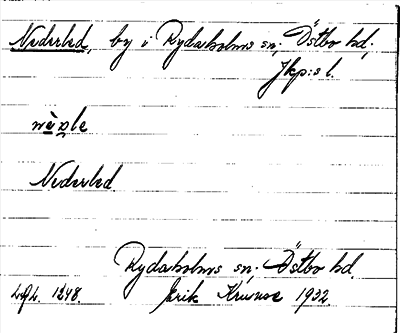 Nederled, by i Rydaholms sn; Östbo hd,
Jkp:s l.
Nederled.
Rydaholms sn; Östbo hd.
Lfl. 1248. Erik Kruuse 1932.